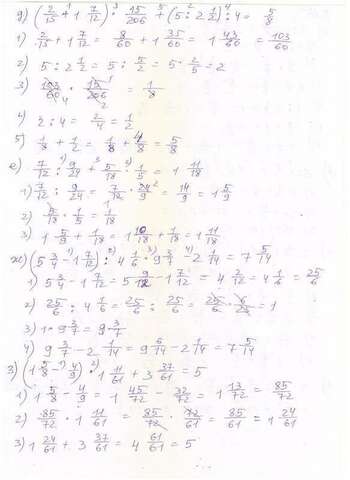 д) (2/15 + 1 7/12) · 15/206 + (5 : 2 1/2) : 4 = 5/8
1) 2/15 + 1 7/12 = 8/60 + 1 35/60 = 1 43/60 = 103/60
2) 5 : 2 1/2 = 5 : 5/2 = 5 · 2/5 = 2
3) 103/60 · 15/206 = 1/8
4) 2 : 4 = 2/4 = 1/2
5) 1/8 + 1/2 = 1/8 + 4/8 = 5/8
е) 7/12 : 9/24 + 5/18 · 1/5 = 1 11/18
1) 7/12 : 9/24 = 7/12 · 24/9 = 14/9 = 1 5/9
2) 5/18 · 1/5 = 1/18
3) 1 5/9 + 1/18 = 1 10/18 + 1/18 = 1 11/18
ж) (5 3/4 - 1 7/12) : 4 1/6 · 9 3/7 - 2 1/14 = 7 5/14
1) 5 3/4 - 1 7/12 = 5 9/12 - 1 7/12 = 4 2/12 = 4 1/6 = 25/6
2) 25/6 : 4 1/6 = 25/6 : 25/6 = 25/6 · 6/25 = 1
3) 1 · 9 3/7 = 9 3/7
4) 9 3/7 - 2 1/14 = 9 6/14 - 2 1/14 = 7 5/14
з) (1 5/8 - 4/9) · 1 11/61 + 3 37/61 = 5
1) 1 5/8 - 4/9 = 1 45/72 - 32/72 = 1 13/72 = 85/72
2) 85/72 · 1 11/61 = 85/72 · 72/61 = 85/61 = 1 24/61
3) 1 24/61 + 3 37/61 = 4 61/61 = 5